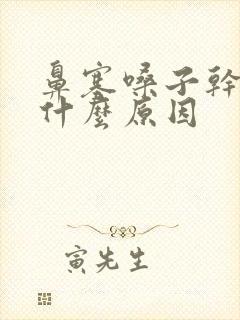 鼻塞嗓子幹
什麼原因
寅先生